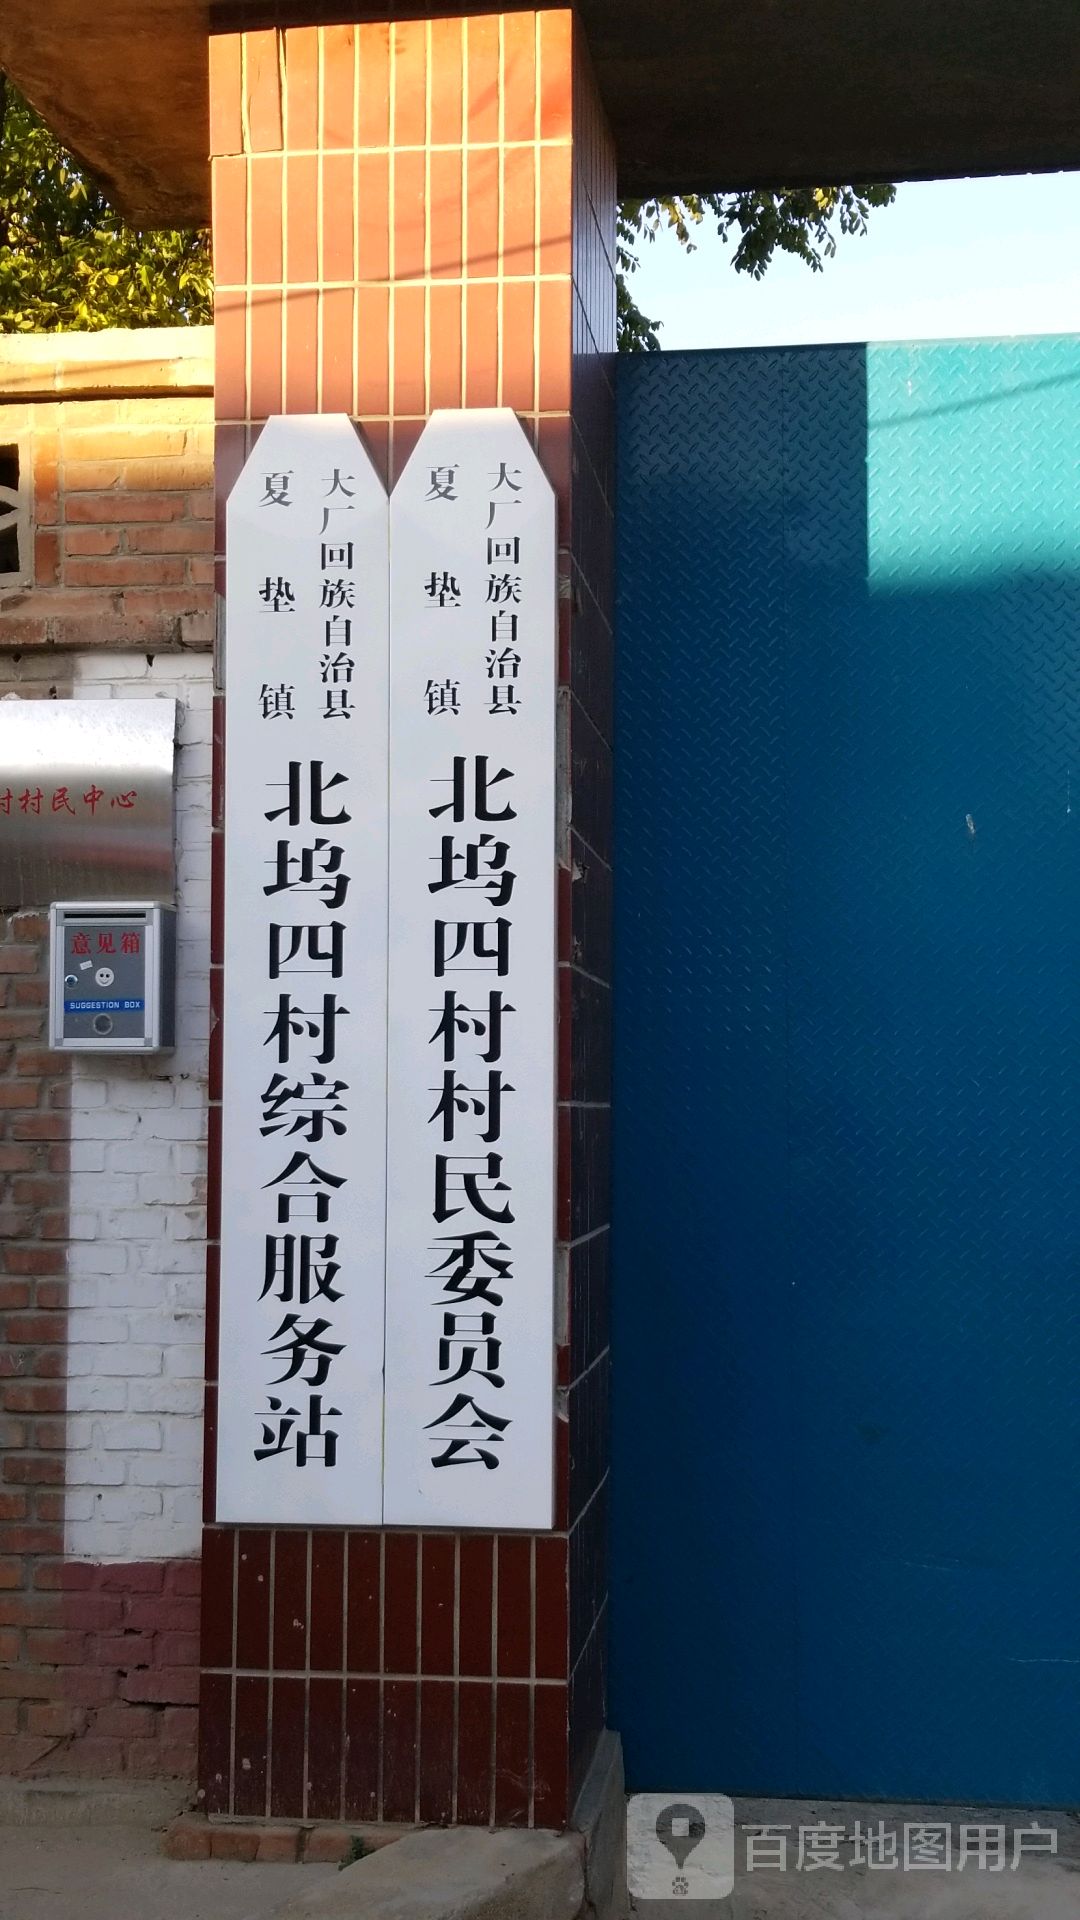 大厂回族自治县
夏垫镇
北坞四村村民委员会
大厂回族自治县
夏垫镇
北坞四村综合服务站
村村民中心
意见箱
SUGGESTION BOX
百度地图用户